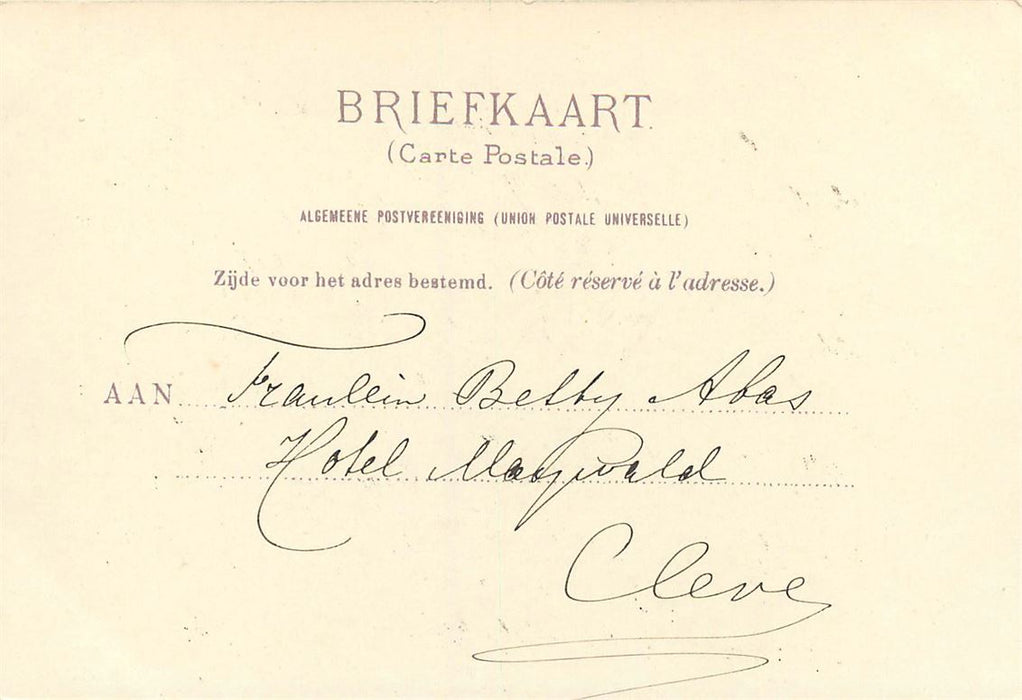 BRIEFKAART.
(Carte Postale.)
ALGEMEENE POSTVEREENIGING (UNION POSTALE UNIVERSELLE)
Zijde voor het adres bestemd. (Côté réservé à l'adresse.)
AAN Fraulein Betty Abas
Hotel Maywald
Cleve